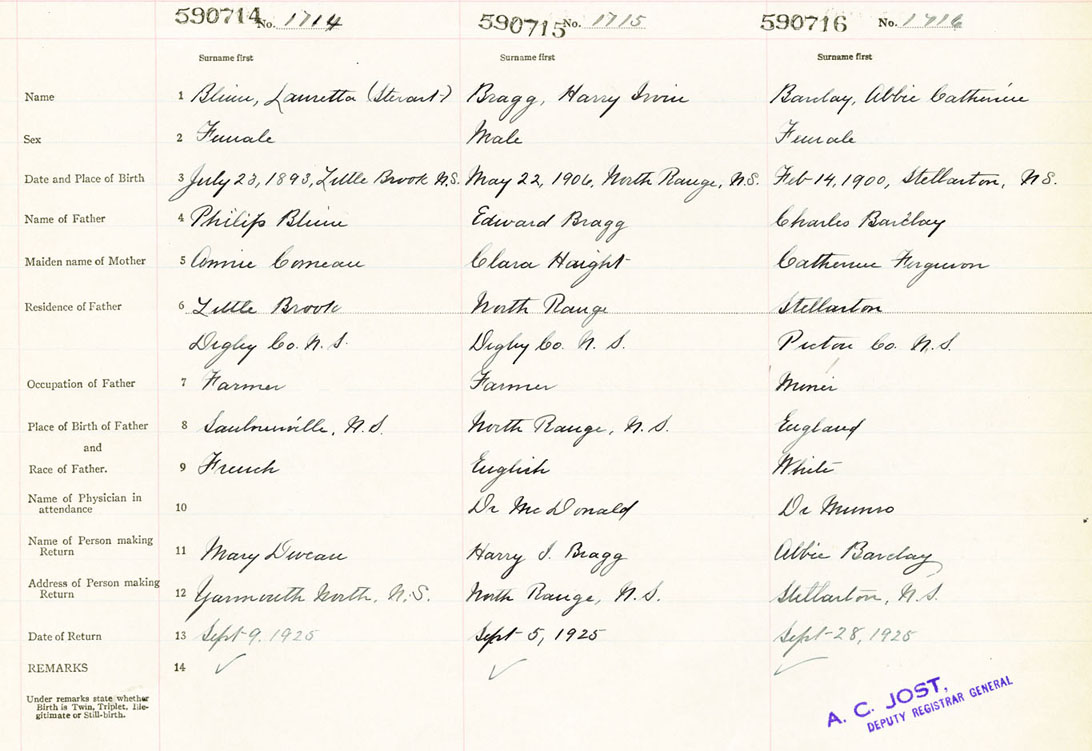 590714 No. 1714 590715 No. 1715 590716 No. 1716
Surname first Surname first Surname first
Name 1 Blinn, Lauretta (Stewart) Bragg, Harry Irvin Barclay, Abbie Catherine
Sex 2 Female Male Female
Date and Place of Birth 3 July 23, 1893, Little Brook N.S. May 22, 1906, North Range, N.S. Feb 14, 1900, Stellarton, N.S.
Name of Father 4 Philip Blinn Edward Bragg Charles Barclay
Maiden name of Mother 5 Annie Comeau Clara Haight Catherine Ferguson
Residence of Father 6 Little Brook North Range Stellarton
Digby Co. N.S. Digby Co. N.S. Pictou Co. N.S.
Occupation of Father 7 Farmer Farmer Miner
Place of Birth of Father 8 Saulnierville, N.S. North Range, N.S. England
and
Race of Father. 9 French English White
Name of Physician in
attendance 10 Dr McDonald Dr Munro
Name of Person making
Return 11 Mary Duveau Harry I. Bragg Abbie Barclay
Address of Person making
Return 12 Yarmouth North, N.S. North Range, N.S. Stellarton, N.S.
Date of Return 13 Sept 9, 1925 Sept 5, 1925 Sept 28, 1925
REMARKS 14
Under remarks state whether
Birth is Twin, Triplet, Ille-
gitimate or Still-birth.
A. C. JOST,
DEPUTY REGISTRAR GENERAL